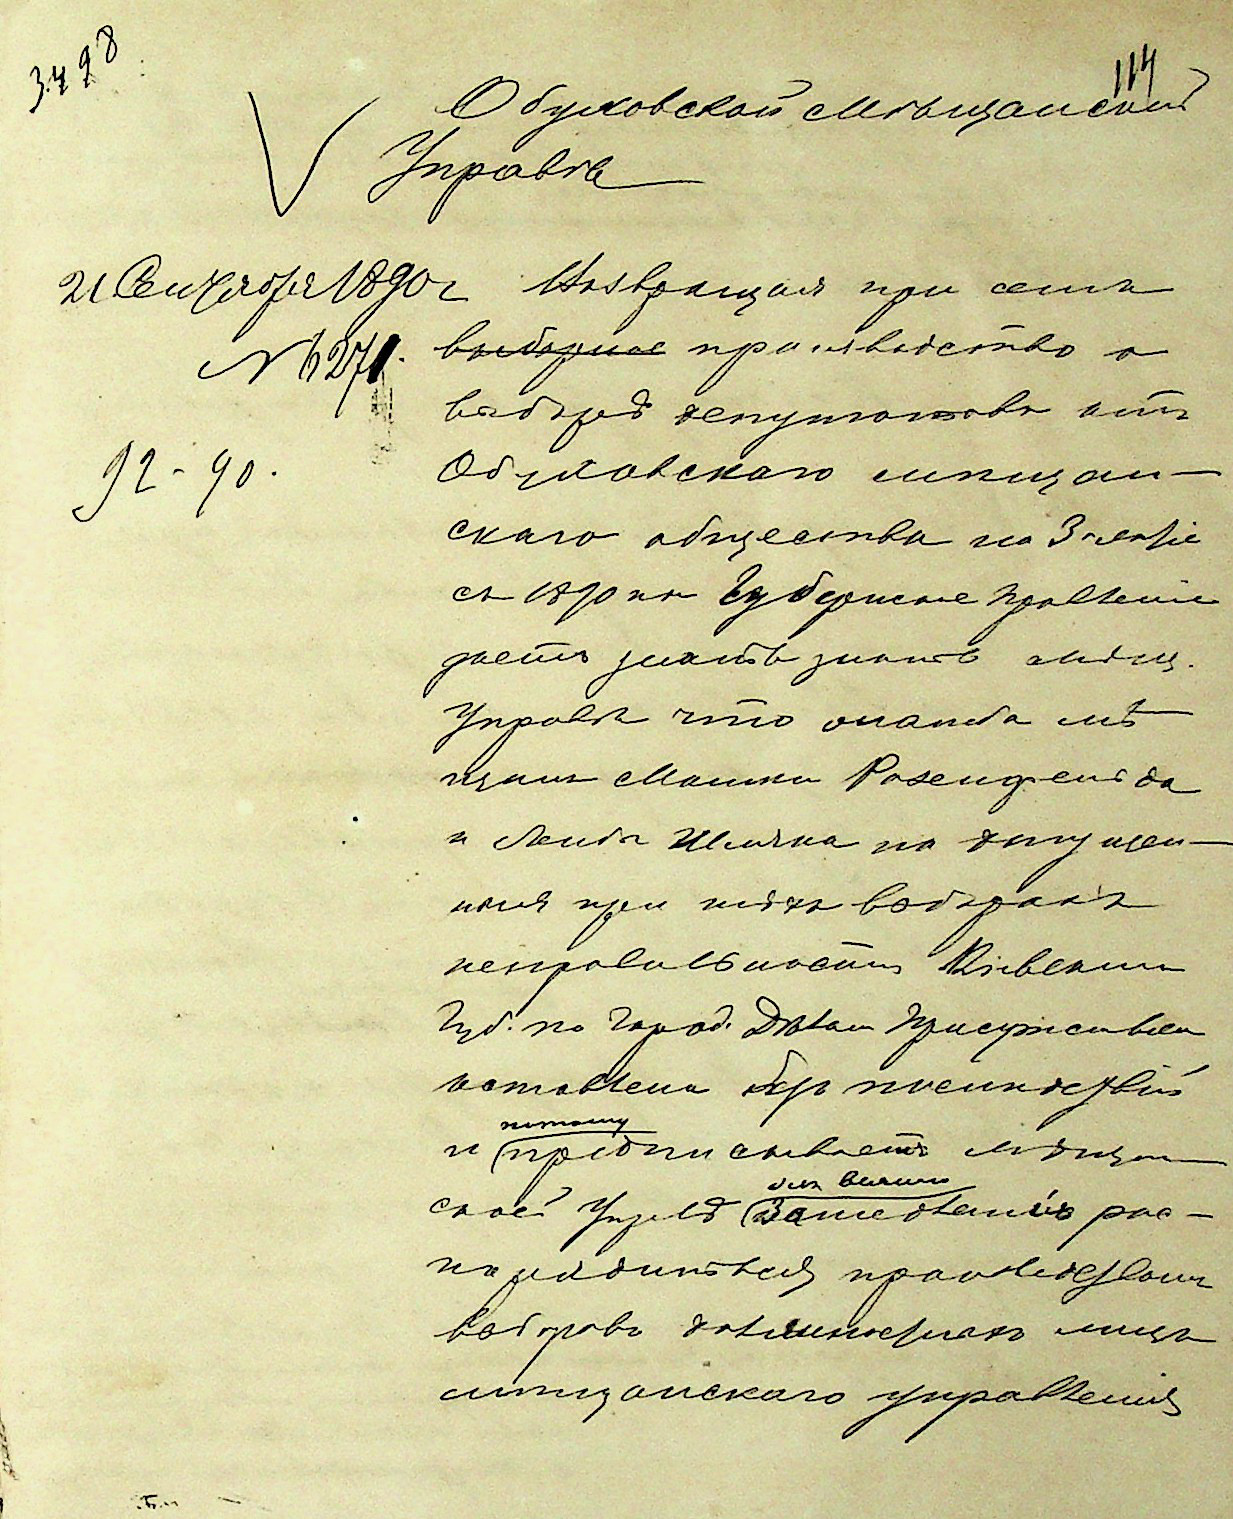 3498
114
Обуховской мѣщанской
Управѣ
21 Сентября 1890 г
№ 6271.
92-90.
Возвращая при семъ
выборное производство о
выборѣ депутатовъ отъ
Обуховскаго мѣщан-
скаго общества на 3 лѣтіе
съ 1890 на Губернское Правленіе
даетъ знать знать мѣщ.
Управѣ что жалоба мѣ
щанъ Мошки Розенфельда
и Лейбы Шляка на допущен-
ныя при этихъ выборахъ
неправильности Кіевскимъ
Губ. по Город. Дѣлам Присутствіем
оставлена безъ послѣдствій
потому
и предписываетъ мѣщан
для вышло
ской Управѣ распо-
рядиться производствомъ
выборовъ должностныхъ лицъ
мѣщанскаго управленія